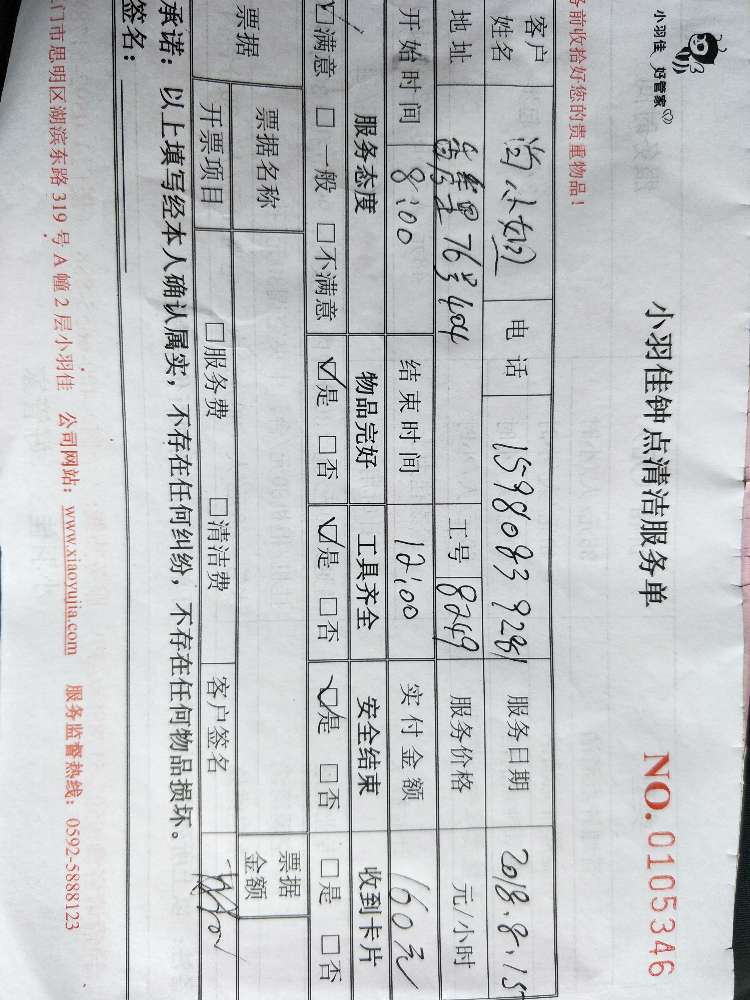 小羽佳 好管家
小羽佳钟点清洁服务单
NO. 0105346
前收拾好您的贵重物品!
客户姓名 小姐 电话 15980839281 服务日期 2018.8.15
地址 76号404 工号 8249 服务价格 元/小时
开始时间 8:00 结束时间 12:00 实付金额 160元
服务态度 物品完好 工具齐全 安全结束 收到卡片
☑满意 □一般 □不满意 ☑是 □否 ☑是 □否 ☑是 □否 □是 □否
票据 票据名称 票据金额
开票项目 □服务费 □清洁费 客户签名
承诺:以上填写经本人确认属实,不存在任何纠纷,不存在任何物品损坏。
签名:
门市思明区湖滨东路319号A幢2层小羽佳 公司网站:www.xiaoyujia.com 服务监督热线:0592-5888123